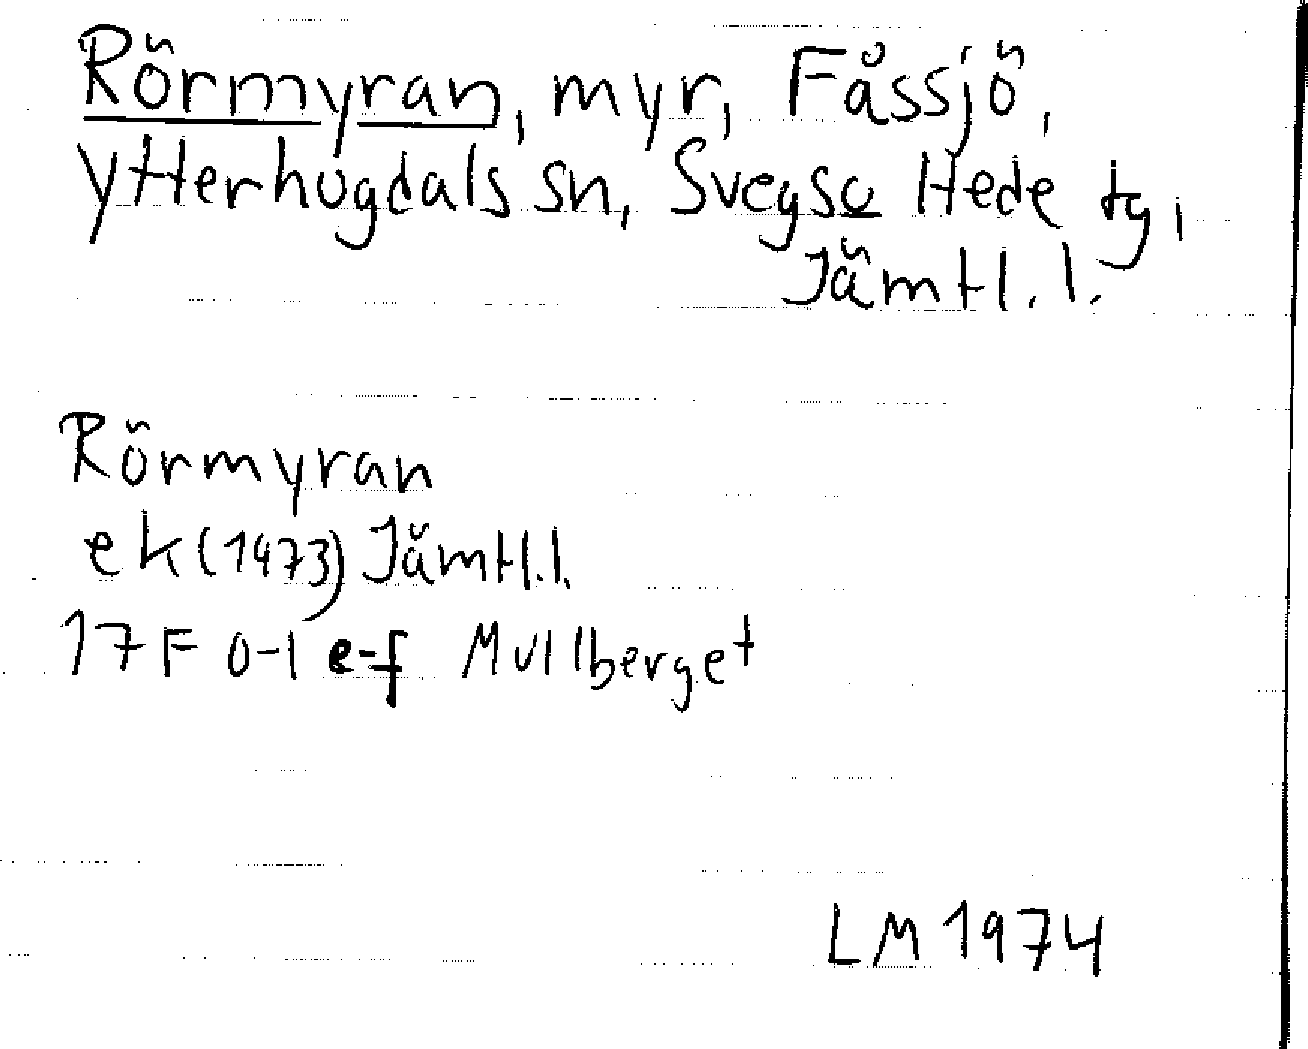 Rörmyran, myr, Fåssjö,
Ytterhogdals sn, Svegs o Hede tg,
Jämtl. l.
Rörmyran
ek (1973) Jämtl.l.
17F 0-1 e-f Mullberget
LM 1974